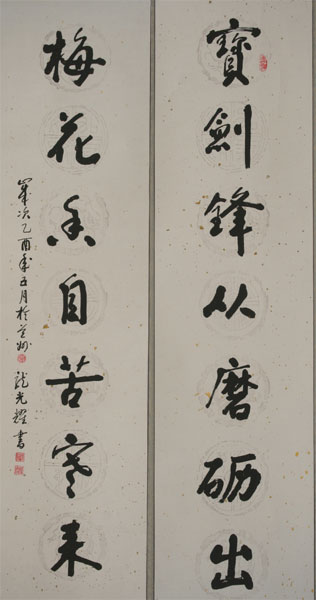 寶劍鋒从磨砺出
梅花香自苦寒来
歲次乙酉年五月於兰州
龙光耀書